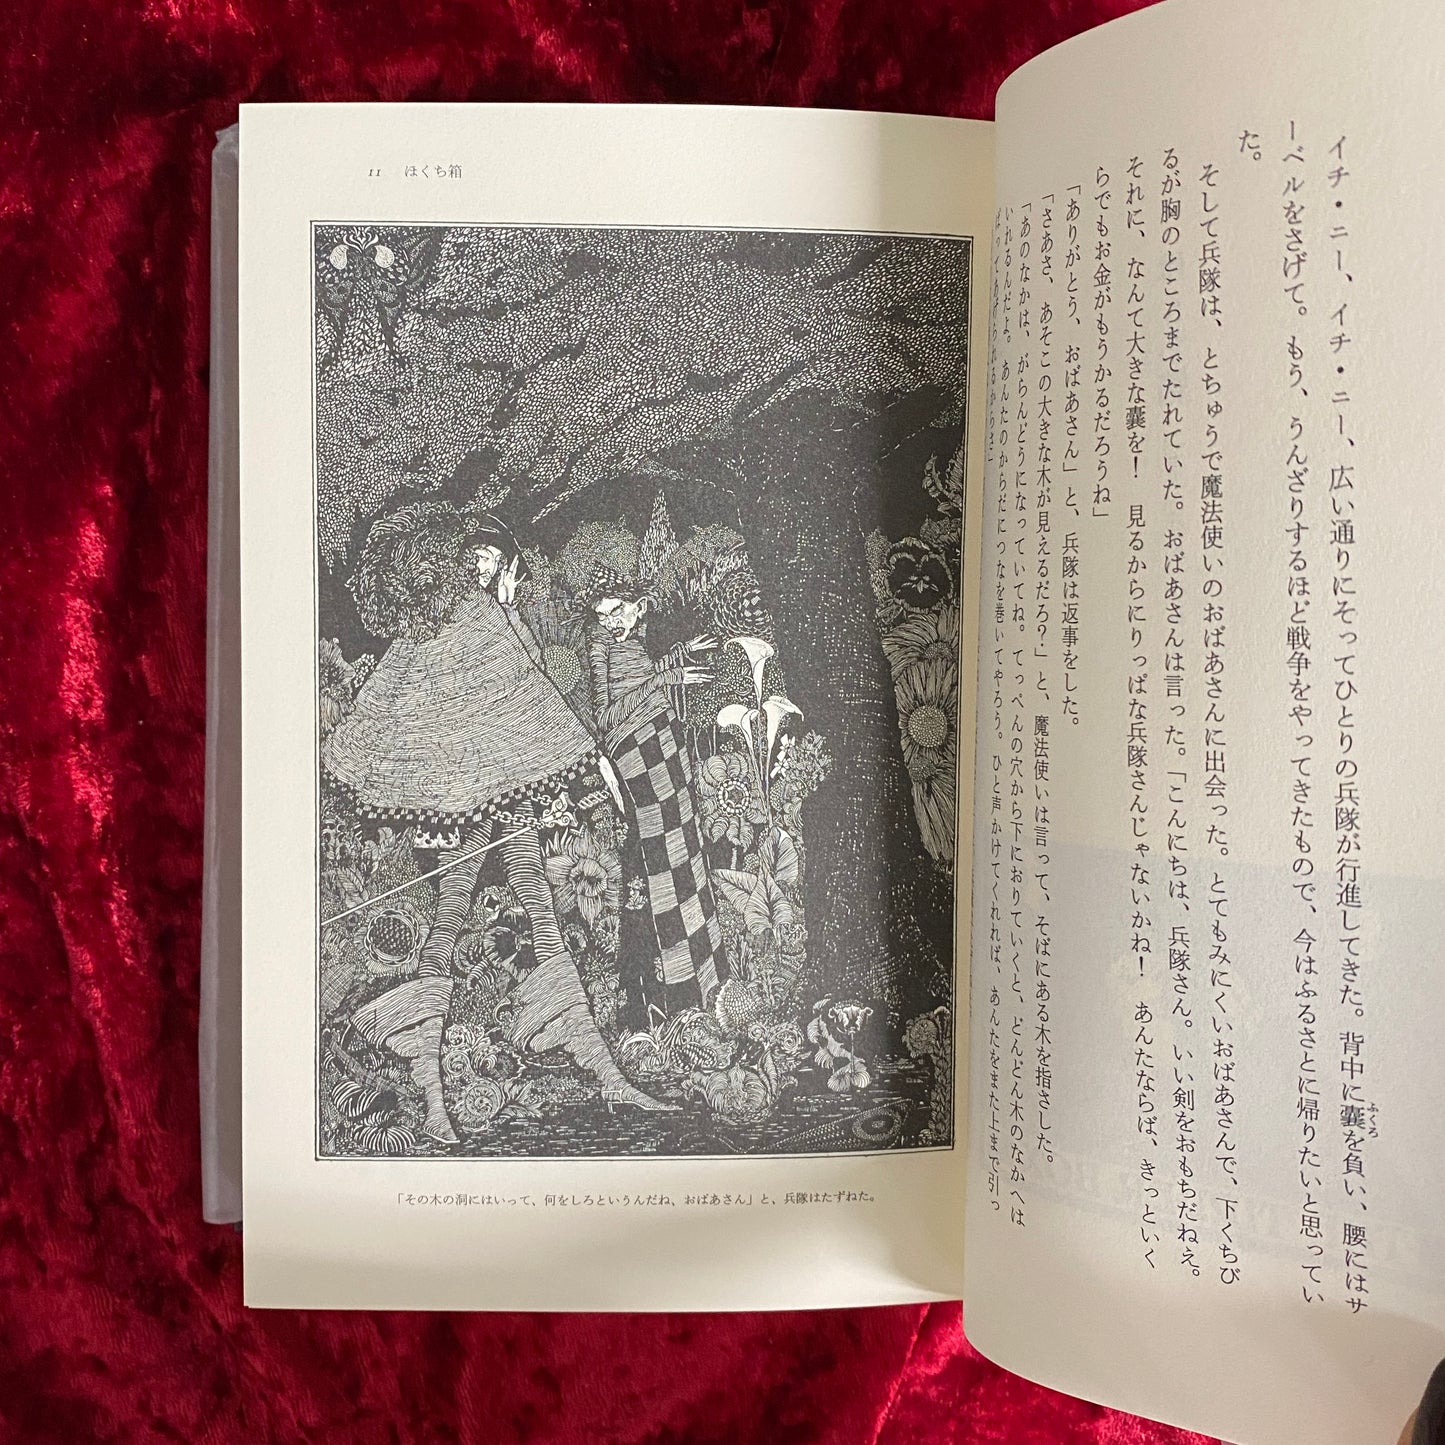 イチ・ニー、イチ・ニー、広い通りにそってひとりの兵隊が行進してきた。背中に囊を負い、腰にはサ
ふくろ
ーベルをさげて。もう、うんざりするほど戦争をやってきたもので、今はふるさとに帰りたいと思ってい
た。
そして兵隊は、とちゅうで魔法使いのおばあさんに出会った。とてもみにくいおばあさんで、下くちび
るが胸のところまでたれていた。おばあさんは言った。「こんにちは、兵隊さん。いい剣をおもちだねえ。
それに、なんて大きな囊を！　見るからにりっぱな兵隊さんじゃないかね！　あんたならば、きっといく
らでもお金がもうかるだろうね」
「ありがとう、おばあさん」と、兵隊は返事をした。
「さあさ、あそこの大きな木が見えるだろ？」と、魔法使いは言って、そばにある木を指さした。
「あのなかは、がらんどうになっていてね。てっぺんの穴から下におりていくと、どんどん木のなかへは
いれるんだよ。あんたのからだにつなを巻いてやろう。ひと声かけてくれれば、あんたをまた上まで引っ
ぱってあげられるからさ」
11　ほくち箱
「その木の洞にはいって、何をしろというんだね、おばあさん」と、兵隊はたずねた。